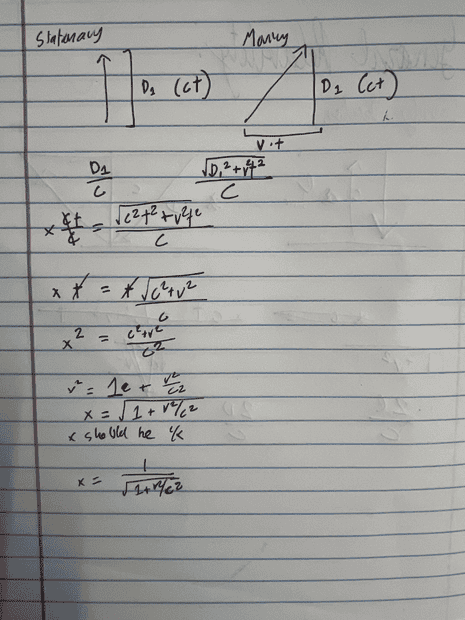 Stationary Moving
D₁ (ct) D₁ (ct)
v·t
D₁/c √(D₁²+v²t²)/c
x ct/c = √(c²t²+v²t²)/c
x t = t √(c²+v²)/c
x² = (c²+v²)/c²
= 1 + v²/c²
x = √(1+v²/c²)
x should be 1/x
x = 1/√(1+v²/c²)